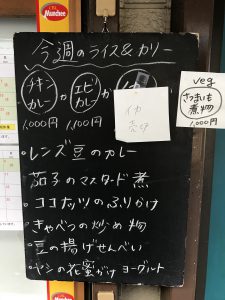 Munchee
今週のライス&カリー
チキンカレー 1,000円
エビカレー 1,100円
イカ
売切
veg
さつまいも煮物
1,000円
・レンズ豆のカレー
茄子のマスタード煮
・ココナッツのふりかけ
・きゃべつの炒め物
・豆の揚げせんべい
・ヤシの花蜜がけヨーグルト